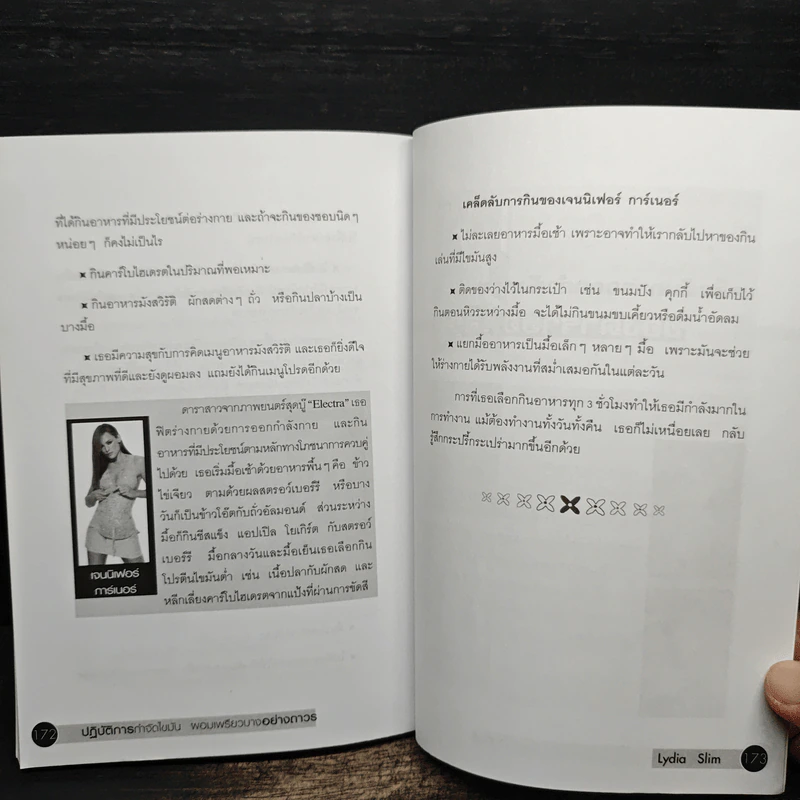 ที่ได้กินอาหารที่มีประโยชน์ต่อร่างกาย และถ้าจะกินของชอบนิดๆ
หน่อยๆ ก็คงไม่เป็นไร
กินคาร์โบไฮเดรตในปริมาณที่พอเหมาะ
กินอาหารมังสวิรัติ ผักสดต่างๆ ถั่ว หรือกินปลาบ้างเป็น
บางมื้อ
เธอมีความสุขกับการคิดเมนูอาหารมังสวิรัติ และเธอก็ยิ่งดีใจ
ที่มีสุขภาพที่ดีและยังดูผอมลง แถมยังได้กินเมนูโปรดอีกด้วย
ดาราสาวจากภาพยนตร์สุดบู๊ “Electra” เธอ
ฟิตร่างกายด้วยการออกกำลังกาย และกิน
อาหารที่มีประโยชน์ตามหลักทางโภชนาการควบคู่
ไปด้วย เธอเริ่มมื้อเช้าด้วยอาหารพื้นๆ คือ ข้าว
ไข่เจียว ตามด้วยผลสตรอว์เบอร์รี หรือบาง
วันก็เป็นข้าวโอ๊ตกับถั่วอัลมอนด์ ส่วนระหว่าง
มื้อก็กินชีสแข็ง แอปเปิล โยเกิร์ต กับสตรอว์
เบอร์รี มื้อกลางวันและมื้อเย็นเธอเลือกกิน
โปรตีนไขมันต่ำ เช่น เนื้อปลากับผักสด และ
หลีกเลี่ยงคาร์โบไฮเดรตจากแป้งที่ผ่านการขัดสี
เจนนิเฟอร์
การ์เนอร์
172 ปฏิบัติการกำจัดไขมัน ผอมเพรียวบางอย่างถาวร
เคล็ดลับการกินของเจนนิเฟอร์ การ์เนอร์
ไม่ละเลยอาหารมื้อเช้า เพราะอาจทำให้เรากลับไปหาของกิน
เล่นที่มีไขมันสูง
ติดของว่างไว้ในกระเป๋า เช่น ขนมปัง คุกกี้ เพื่อเก็บไว้
กินตอนหิวระหว่างมื้อ จะได้ไม่กินขนมขบเคี้ยวหรือดื่มน้ำอัดลม
แยกมื้ออาหารเป็นมื้อเล็กๆ หลายๆ มื้อ เพราะมันจะช่วย
ให้ร่างกายได้รับพลังงานที่สม่ำเสมอกันในแต่ละวัน
การที่เธอเลือกกินอาหารทุก 3 ชั่วโมงทำให้เธอมีกำลังมากใน
การทำงาน แม้ต้องทำงานทั้งวันทั้งคืน เธอก็ไม่เหนื่อยเลย กลับ
รู้สึกกระปรี้กระเปร่ามากขึ้นอีกด้วย
Lydia Slim 173